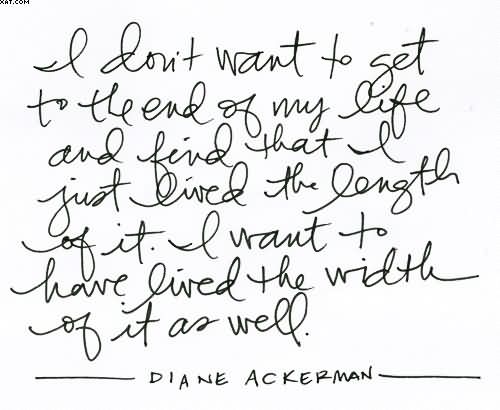 XAT.COM
I don't want to get
to the end of my life
and find that I
just lived the length
of it. I want to
have lived the width
of it as well.
DIANE ACKERMAN